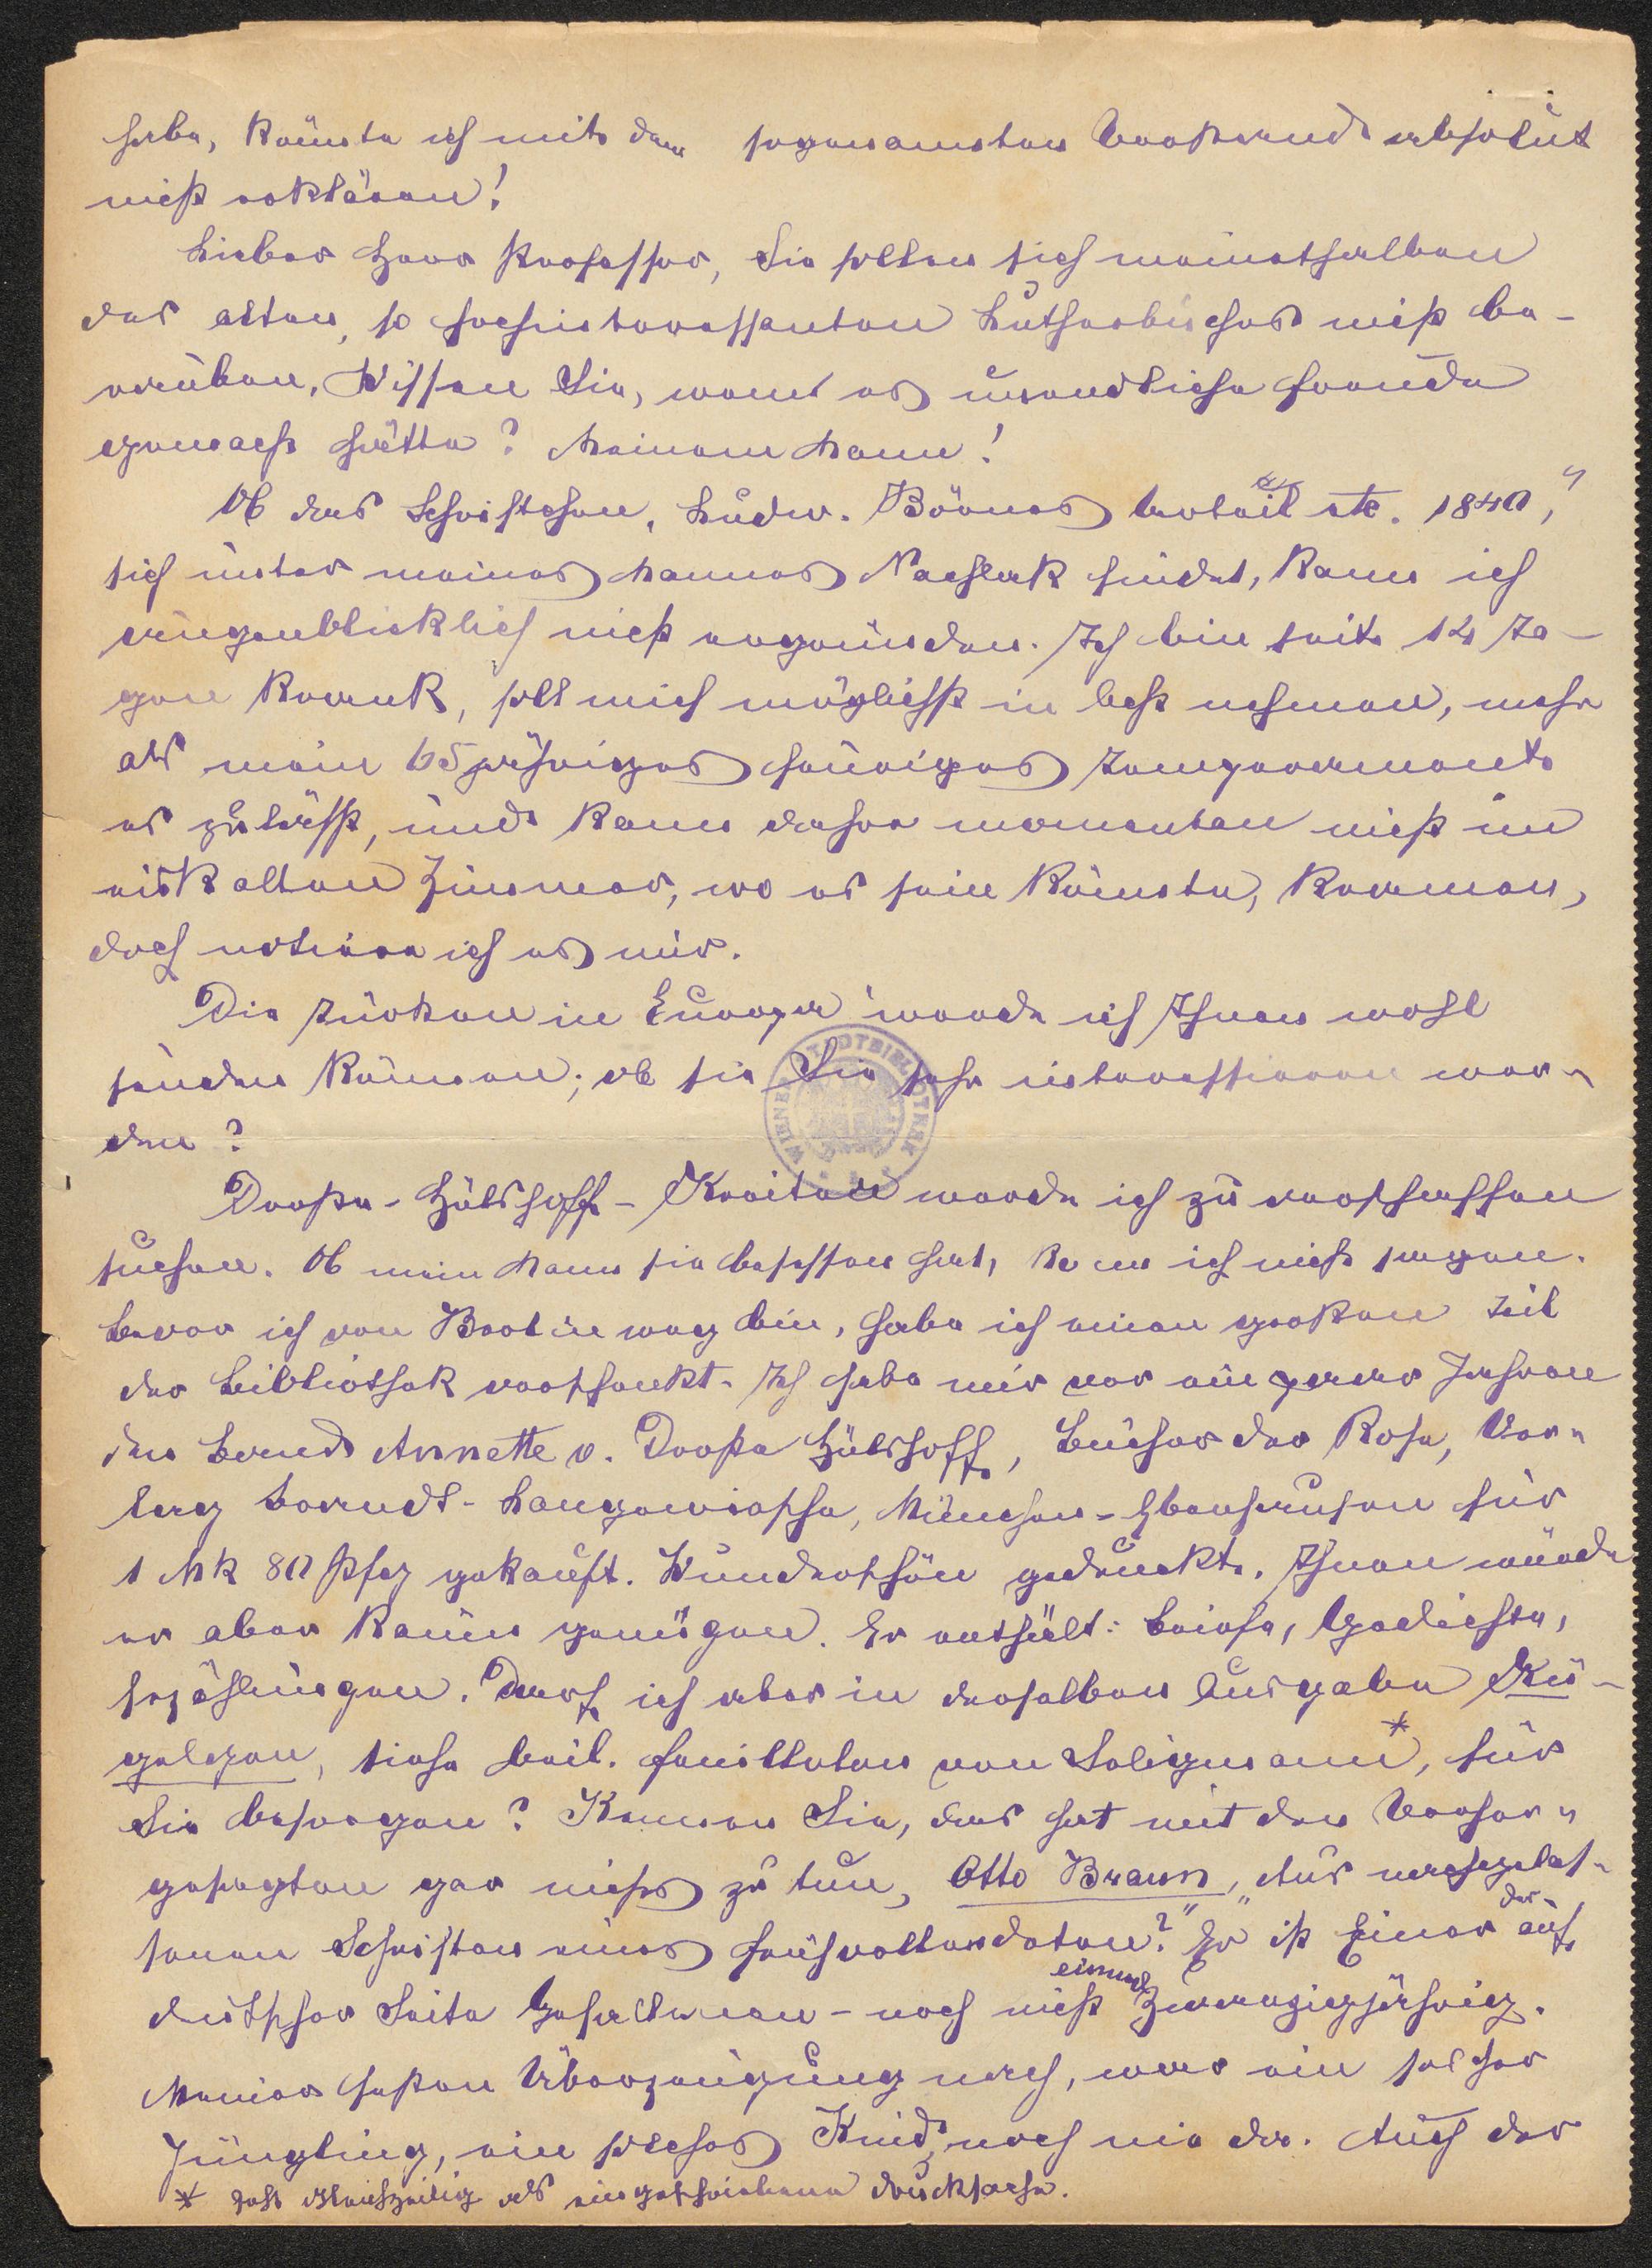 habe, konnte ich mit dem sogenannten Verstand absolut
nicht erklären!
Lieber Herr Professor, Sie sollen sich meinethalben
des alten, so hochinteressanten Lutherbuches nicht be-
rauben. Wissen Sie, wem es unendliche Freude
gemacht hätte? Meinem Mann!
Ob das Schriftchen, Ludw. Börnes Urteil etc. 1840,"
sich unter meines Mannes Nachlaß findet, kann ich
augenblicklich nicht ergründen. Ich bin seit 14 Ta-
gen krank, soll mich möglichst in Acht nehmen, mehr
als mein 65jähriges feuriges Temperament
es zuläßt, und kann daher momentan nicht im
eiskalten Zimmer, wo es sein könnte, kramen,
doch notiere ich es mir.
Die Türken in Europa werde ich Ihnen wohl
senden können; ob sie Sie sehr interessieren wer-
den?
Droste-Hülshoff- werde ich zu verschaffen
suchen. Ob mein Mann sie besessen hat, kann ich nicht sagen.
Bevor ich von Berlin weg bin, habe ich einen großen Teil
der Bibliothek verschenkt. Ich habe mir vor ein paar Jahren
den Band Annette v. Droste Hülshoff, Bücher der Rose, Ver-
lag Langewiesche, München-Ebenhausen für
1 Mk 80 Pfg gekauft. Wunderschön gedruckt. Ihnen würde
er aber kaum genügen. Er enthält: Briefe, Gedichte,
Erzählungen. Darf ich aber in derselben Ausgabe Kü-
gelgen, siehe beil. Feuilleton von Seligmann*, für
Sie besorgen? Kennen Sie, das hat mit dem Vorher-
gesagten gar nichts zu tun, Otto Braun, Aus nachgelas-
senen Schriften eines Frühvollendeten?" Er ist Einer der auf
deutscher Seite Gefallenen – noch nicht einmal Zwanzigjährig.
Meiner festen Überzeugung nach, war ein solcher
Jüngling, ein solches Kind, noch nie da. Auch der
* geht gleichzeitig als eingeschriebene Drucksache.
WIENER STADTBIBLIOTHEK